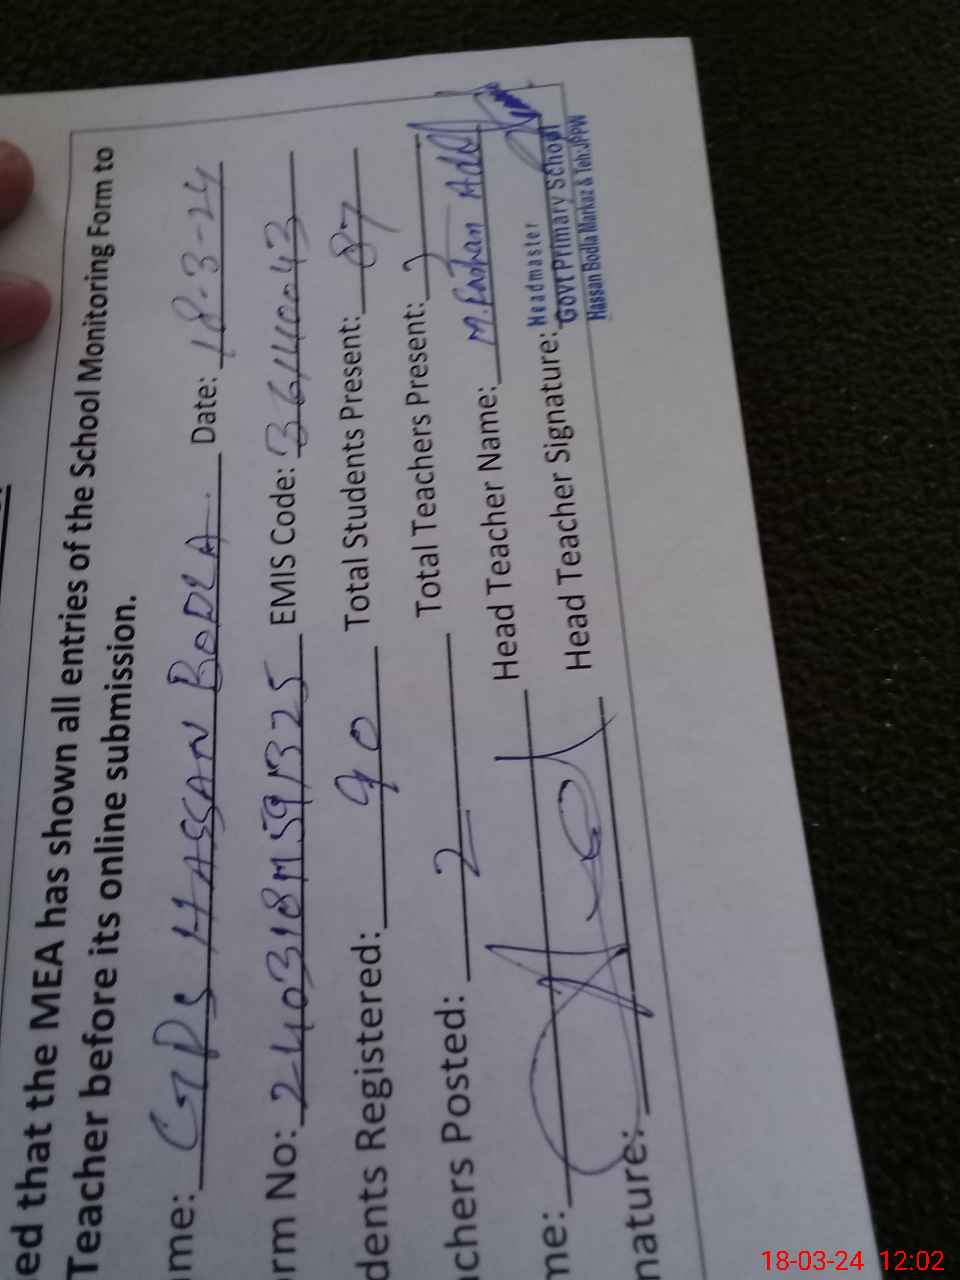 ed that the MEA has shown all entries of the School Monitoring Form to
Teacher before its online submission.
me: GPS HASSAN BODLA Date: 18-3-24
rm No: 240318M591325 EMIS Code: 36140043
dents Registered: 90 Total Students Present: 87
chers Posted: 2 Total Teachers Present: 2
me: Head Teacher Name: M.
nature: Head Teacher Signature:
Headmaster
Govt Primary School
Hassan Bodla Markaz & Teh:JPPW
18-03-24 12:02